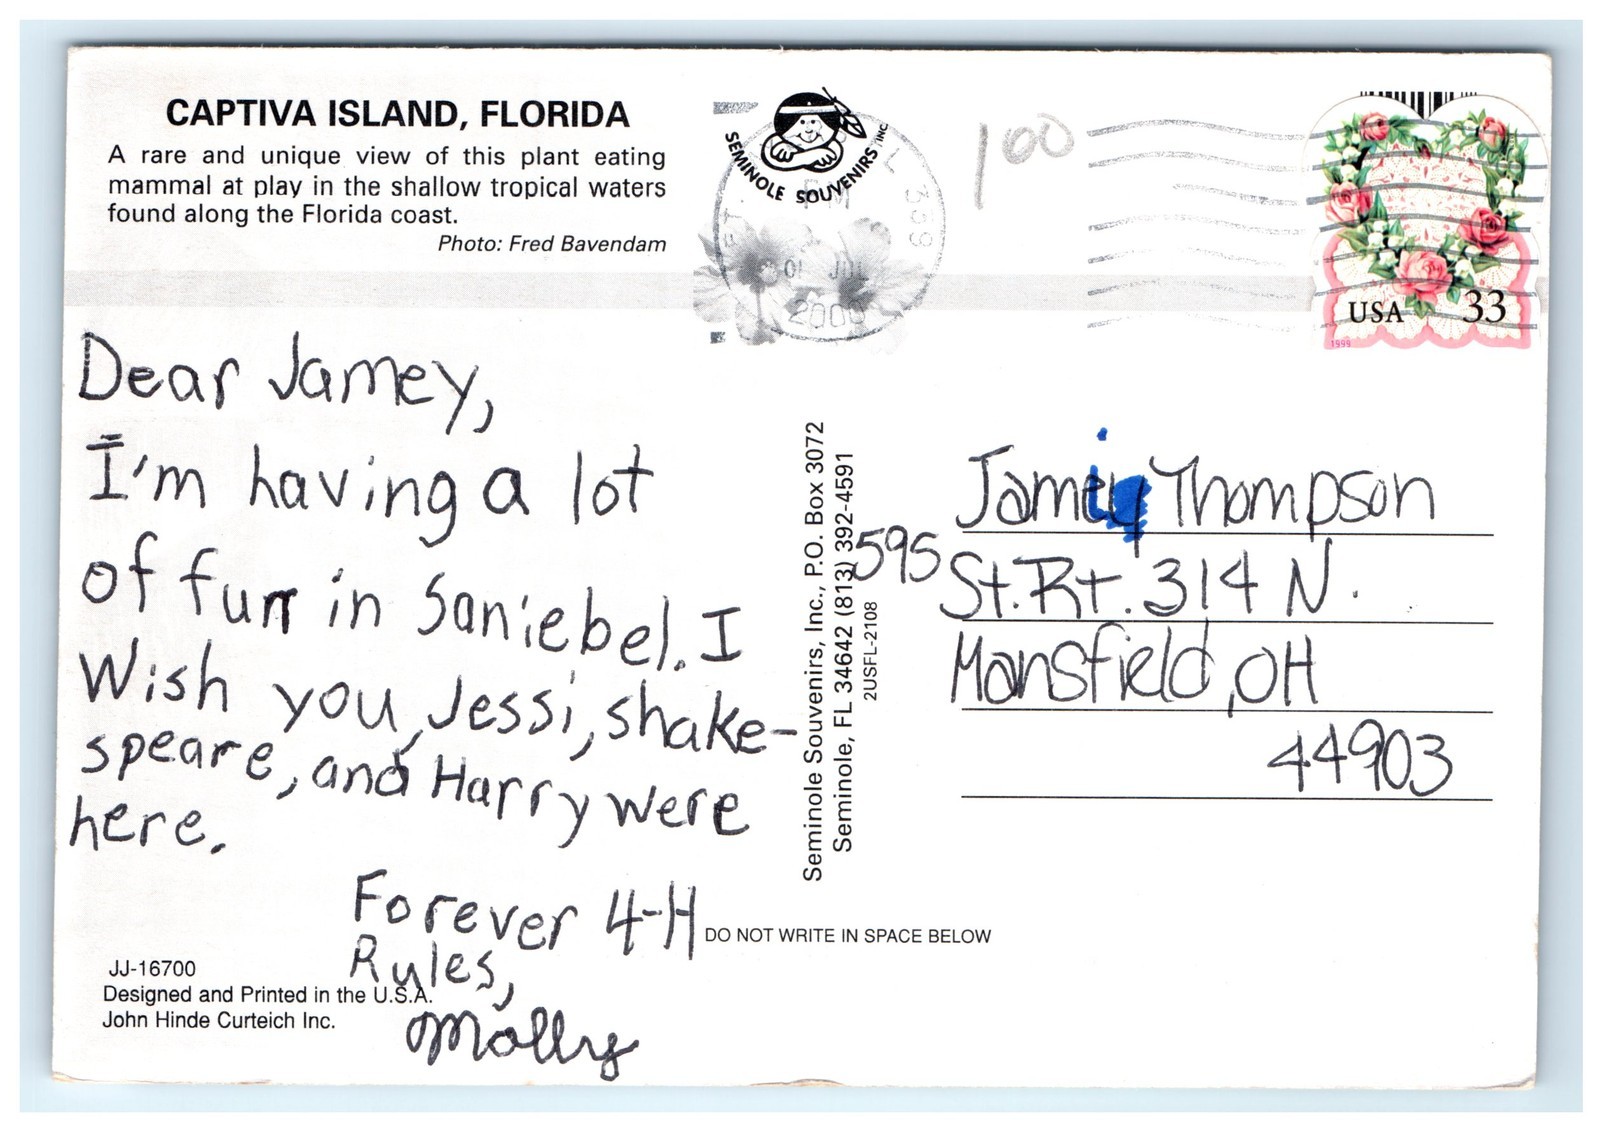 CAPTIVA ISLAND, FLORIDA
A rare and unique view of this plant eating
mammal at play in the shallow tropical waters
found along the Florida coast.
Photo: Fred Bavendam
SEMINOLE SOUVENIRS INC.
PM
L 339
01 JUL
2000
100
USA 33
1999
Dear Jamey,
I'm having a lot
of funn in Saniebel. I
Wish you, Jessi, shake-
speare, and Harry were
here.
Forever 4-H
Rules,
Molly
JJ-16700
Designed and Printed in the U.S.A.
John Hinde Curteich Inc.
Seminole Souvenirs, Inc., P.O. Box 3072
Seminole, FL 34642 (813) 392-4591
2USFL-2108
DO NOT WRITE IN SPACE BELOW
Jamie Thompson
595 St. Rt. 314 N.
Mansfield, OH
44903